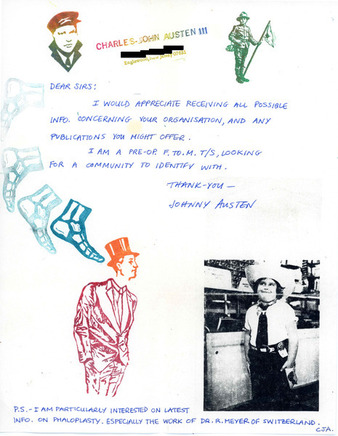 CHARLES-JOHN AUSTEN III
DEAR SIRS:
I WOULD APPRECIATE RECEIVING ALL POSSIBLE
INFO. CONCERNING YOUR ORGANISATION, AND ANY
PUBLICATIONS YOU MIGHT OFFER.
I AM A PRE-OP. F. TO. M. T/S, LOOKING
FOR A COMMUNITY TO IDENTIFY WITH.
THANK-YOU —
JOHNNY AUSTEN
P.S. - I AM PARTICULARLY INTERESTED ON LATEST
INFO. ON PHALOPLASTY. ESPECIALLY THE WORK OF DR. R. MEYER OF SWITZERLAND.
CJA.